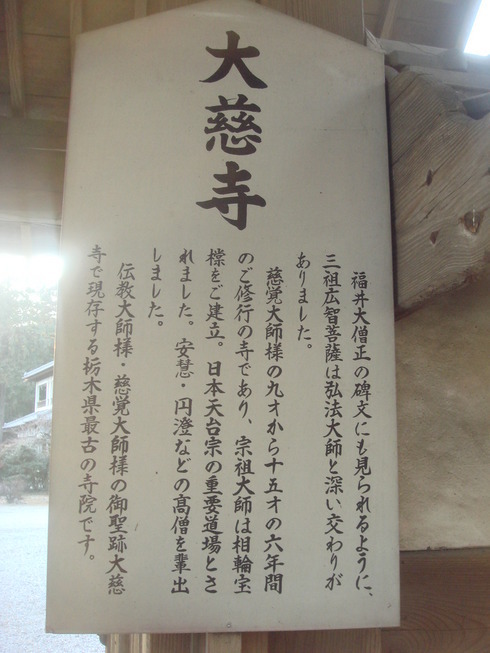 大慈寺
福井大僧正の碑文にも見られるように、
三祖広智菩薩は弘法大師と深い交わりが
ありました。
慈覚大師様の九才から十五才の六年間
のご修行の寺であり、宗祖大師は相輪宝
橖をご建立。日本天台宗の重要道場とさ
れました。安慧・円澄などの高僧を輩出
しました。
伝教大師様・慈覚大師様の御聖跡大慈
寺で現存する栃木県最古の寺院です。